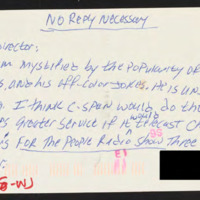 No Reply Necessary
irector:
m mystified by the popularity of
s, and his off-color jokes. He is un
. I think C-SPAN would do the
s greater service if it would recast C
s for the People Radio show three
r.